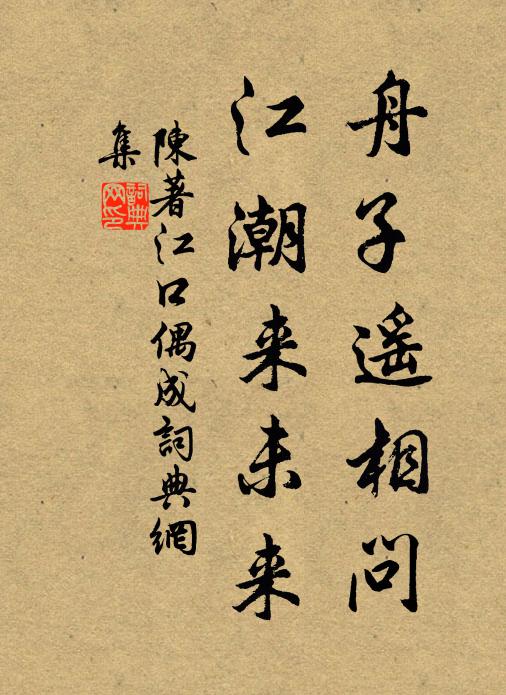 舟子遥相问
江潮来未来
陳著江口偶成詞典網
集
詞典网印